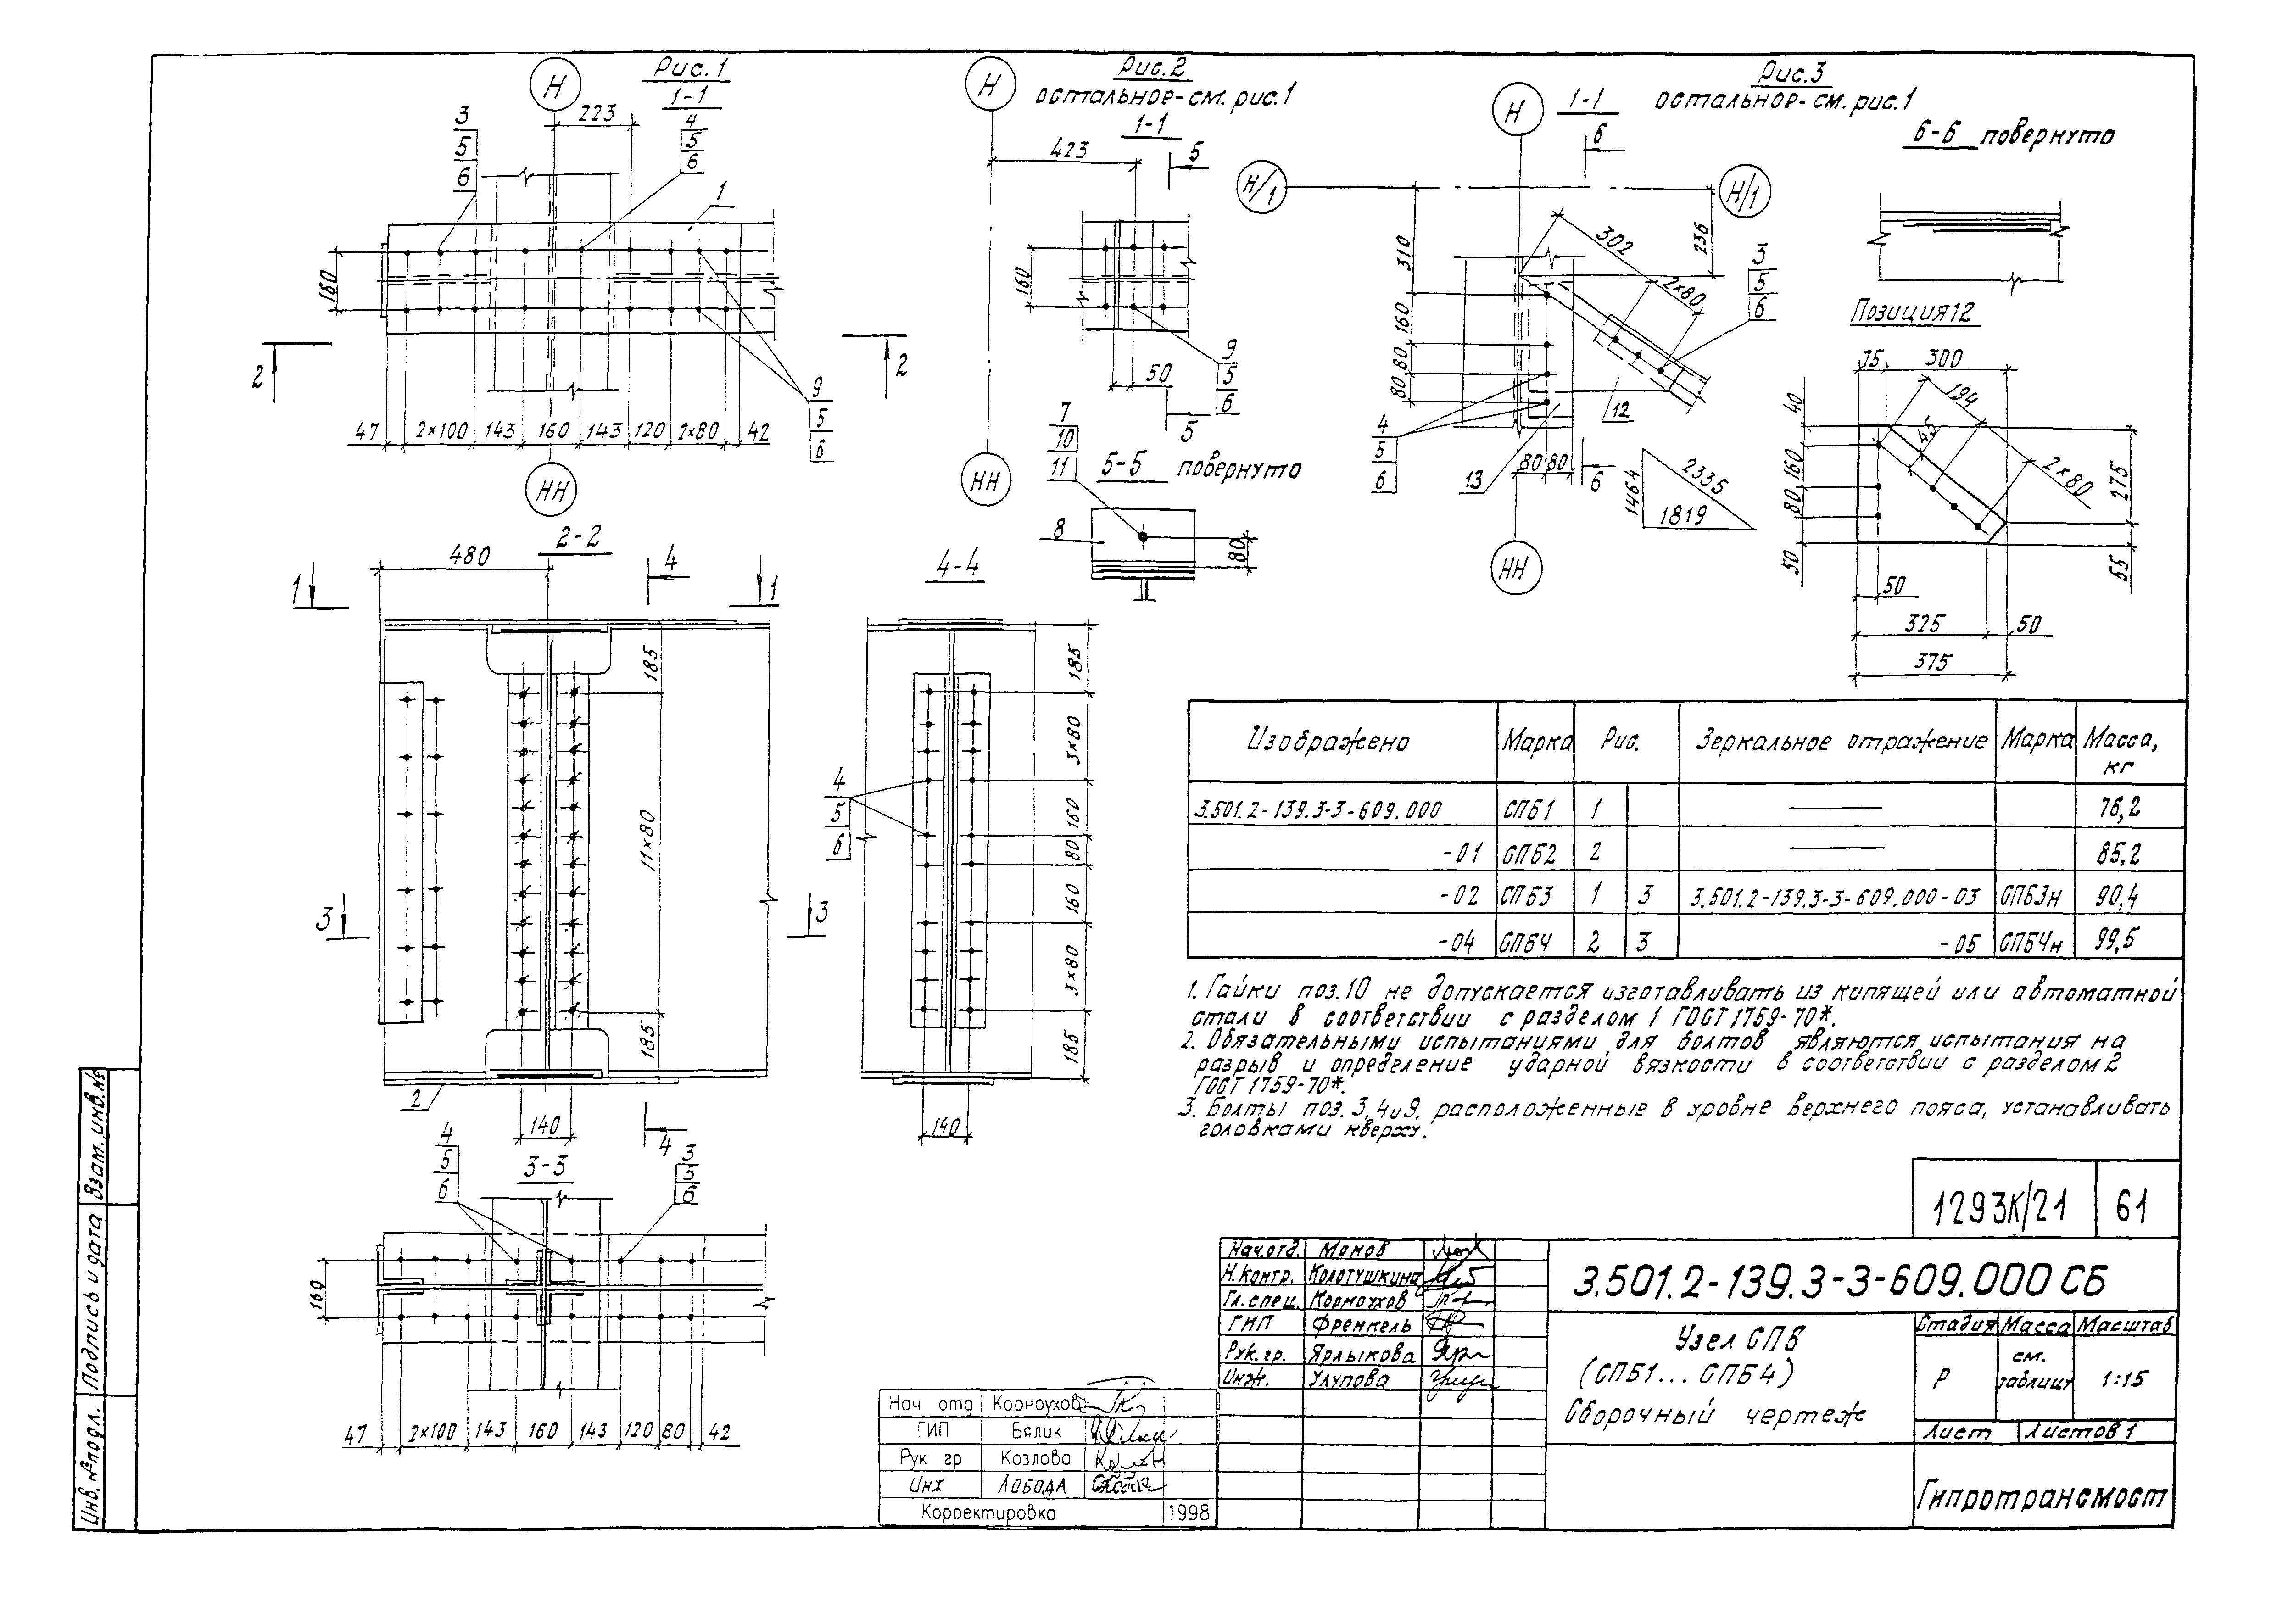 Рис. 1
1-1
Н
223
3
5
6
4
5
6
1
160
2
2
9
5
6
47
2×100
143
160
143
120
2×80
42
НН
Рис. 2
остальное-см. рис. 1
1-1
Н
423
5
160
50
9
5
6
5
7
10
11
НН
5-5 повернуто
8
80
Рис. 3
остальное-см. рис. 1
1-1
Н
6
Н/1
Н/1
310
302
236
2×80
3
5
6
160
80
80
12
4
5
6
13
80
80
6
НН
1464
2335
1819
6-6 повернуто
Позиция 12
75
300
40
194
45
160
2×80
275
80
50
50
55
325
50
375
2-2
480
4
1
1
185
11×80
185
3
3
2
140
4
4-4
185
3×80
4
5
6
160
80
160
3×80
185
140
3-3
4
5
6
3
5
6
160
47
2×100
143
160
143
120
80
42
Изображено Марка Рис. Зеркальное отражение Марка Масса, кг
3.501.2-139.3-3-609.000 СПБ1 1 — 76,2
-01 СПБ2 2 — 85,2
-02 СПБ3 1 3 3.501.2-139.3-3-609.000-03 СПБ3н 90,4
-04 СПБ4 2 3 -05 СПБ4н 99,5
1. Гайки поз. 10 не допускается изготавливать из кипящей или автоматной
стали в соответствии с разделом 1 ГОСТ 1759-70*.
2. Обязательными испытаниями для болтов являются испытания на
разрыв и определение ударной вязкости в соответствии с разделом 2
ГОСТ 1759-70*.
3. Болты поз. 3, 4 и 9, расположенные в уровне верхнего пояса, устанавливать
головками кверху.
1293К/21 61
Нач.отд. Монов
Н.контр. Колотушкина
Гл.спец. Корноухов
ГИП Френкель
Рук.гр. Ярлыкова
Инж. Улупова
3.501.2-139.3-3-609.000 СБ
Узел СПБ
(СПБ1...СПБ4)
Сборочный чертеж
Стадия Масса Масштаб
Р см. таблицу 1:15
Лист Листов 1
Гипротрансмост
Нач отд Корноухов
ГИП Бялик
Рук гр Козлова
Инж Лобода
Корректировка 1998
Инв. № подл. Подпись и дата Взам. инв. №